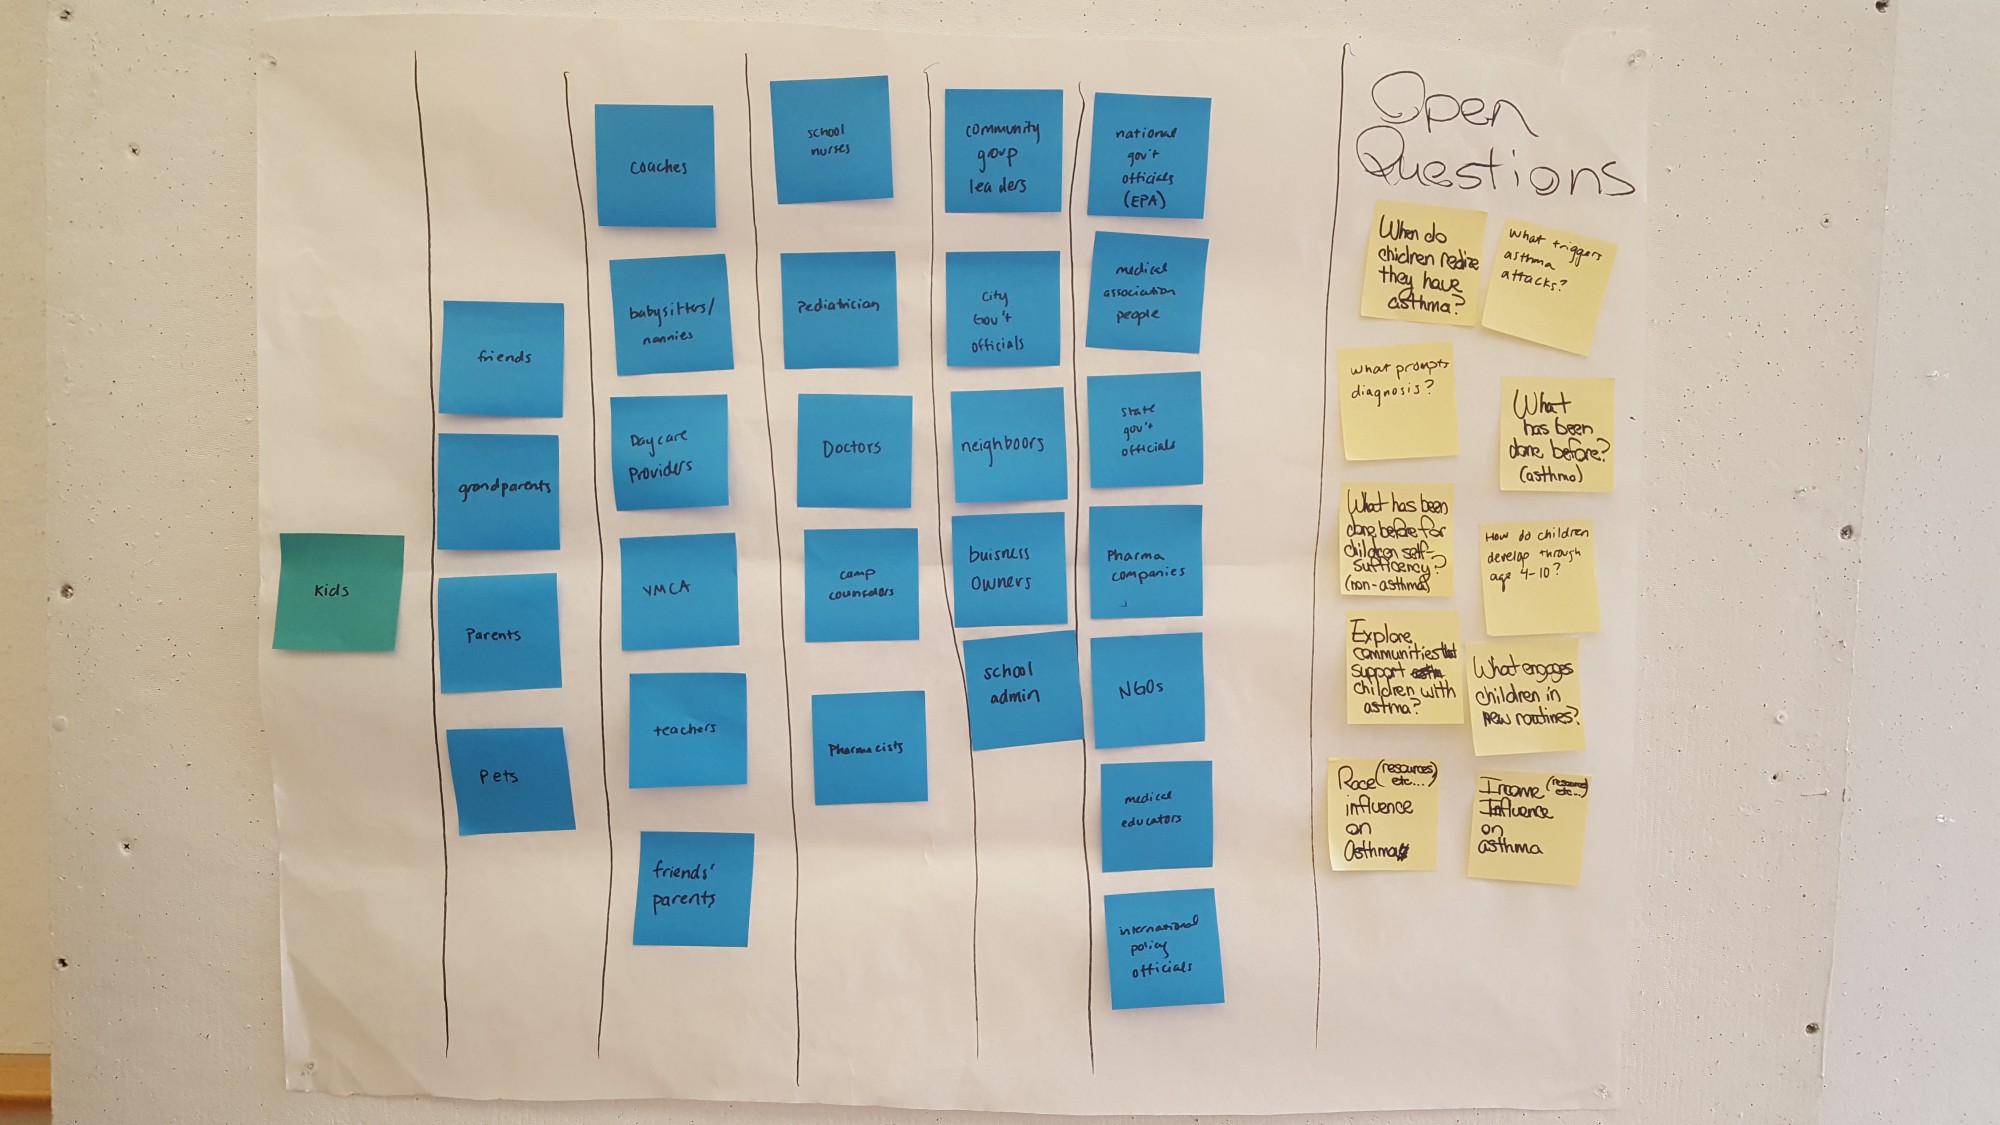 Kids
friends
grandparents
Parents
Pets
coaches
babysitters/
nannies
Daycare
Providers
YMCA
teachers
friends'
parents
school
nurses
Pediatrician
Doctors
camp
counselors
Pharmacists
community
group
leaders
city
Gov't
officials
neighboors
buisness
owners
school
admin
national
gov't
officials
(EPA)
medical
association
people
state
gov't
officials
Pharma
companies
NGOs
medical
educators
international
policy
officials
Open
Questions
When do
children realize
they have
asthma?
What triggers
asthma
attacks?
What prompts
diagnosis?
What
has been
done before?
(asthma)
What has been
done before for
children self-
sufficency?
(non-asthma)
How do children
develop through
age 4-10?
Explore
communities that
support
children with
astma?
What engages
children in
new routines?
Race (resources)
etc...
influence
on
Asthma
Income (resources)
etc...
Influence
on
asthma